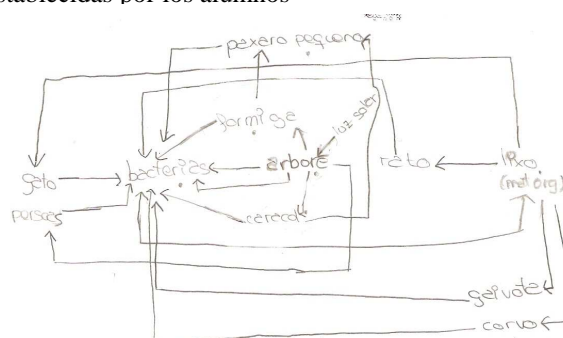 establecidas por los alumnos
paxaro pequeno
formiga
luz solar
gato
bacterias
arbore
rato
lixo
(mat org)
caracol
gaivota
corvo